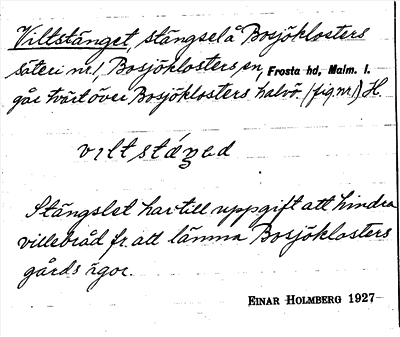 Viltstänget, stängsel å Bosjöklosters
säteri nr 1, Bosjöklosters sn, Frosta hd, Malm. l.
går tvärt över Bosjöklosters halvö. (fig. nr 1) H.
Stängslet har till uppgift att hindra
villebråd fr. att lämna Bosjöklosters
gårds ägor.
EINAR HOLMBERG 1927